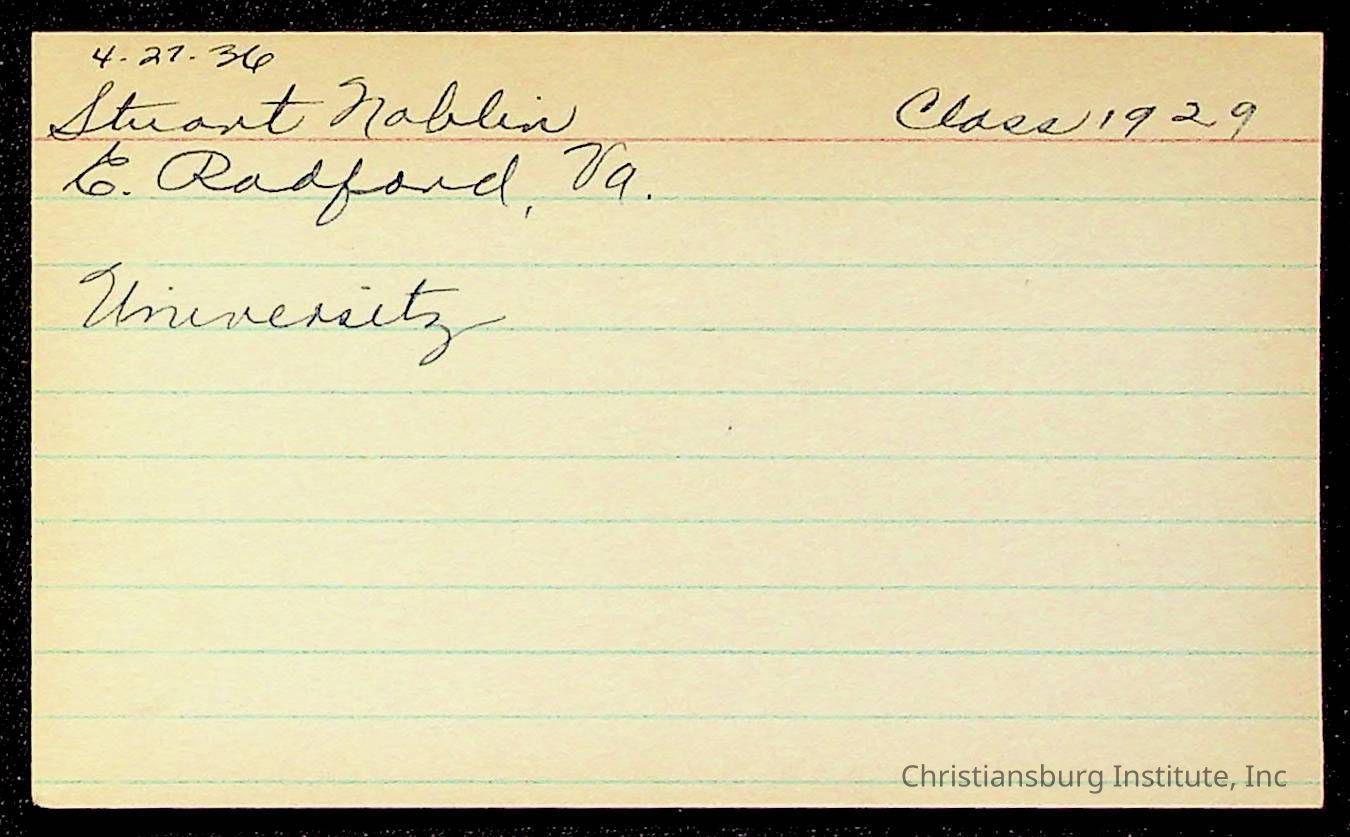 4-27-36
Stuart Noblin Class 1929
E. Radford, Va.
University
Christiansburg Institute, Inc